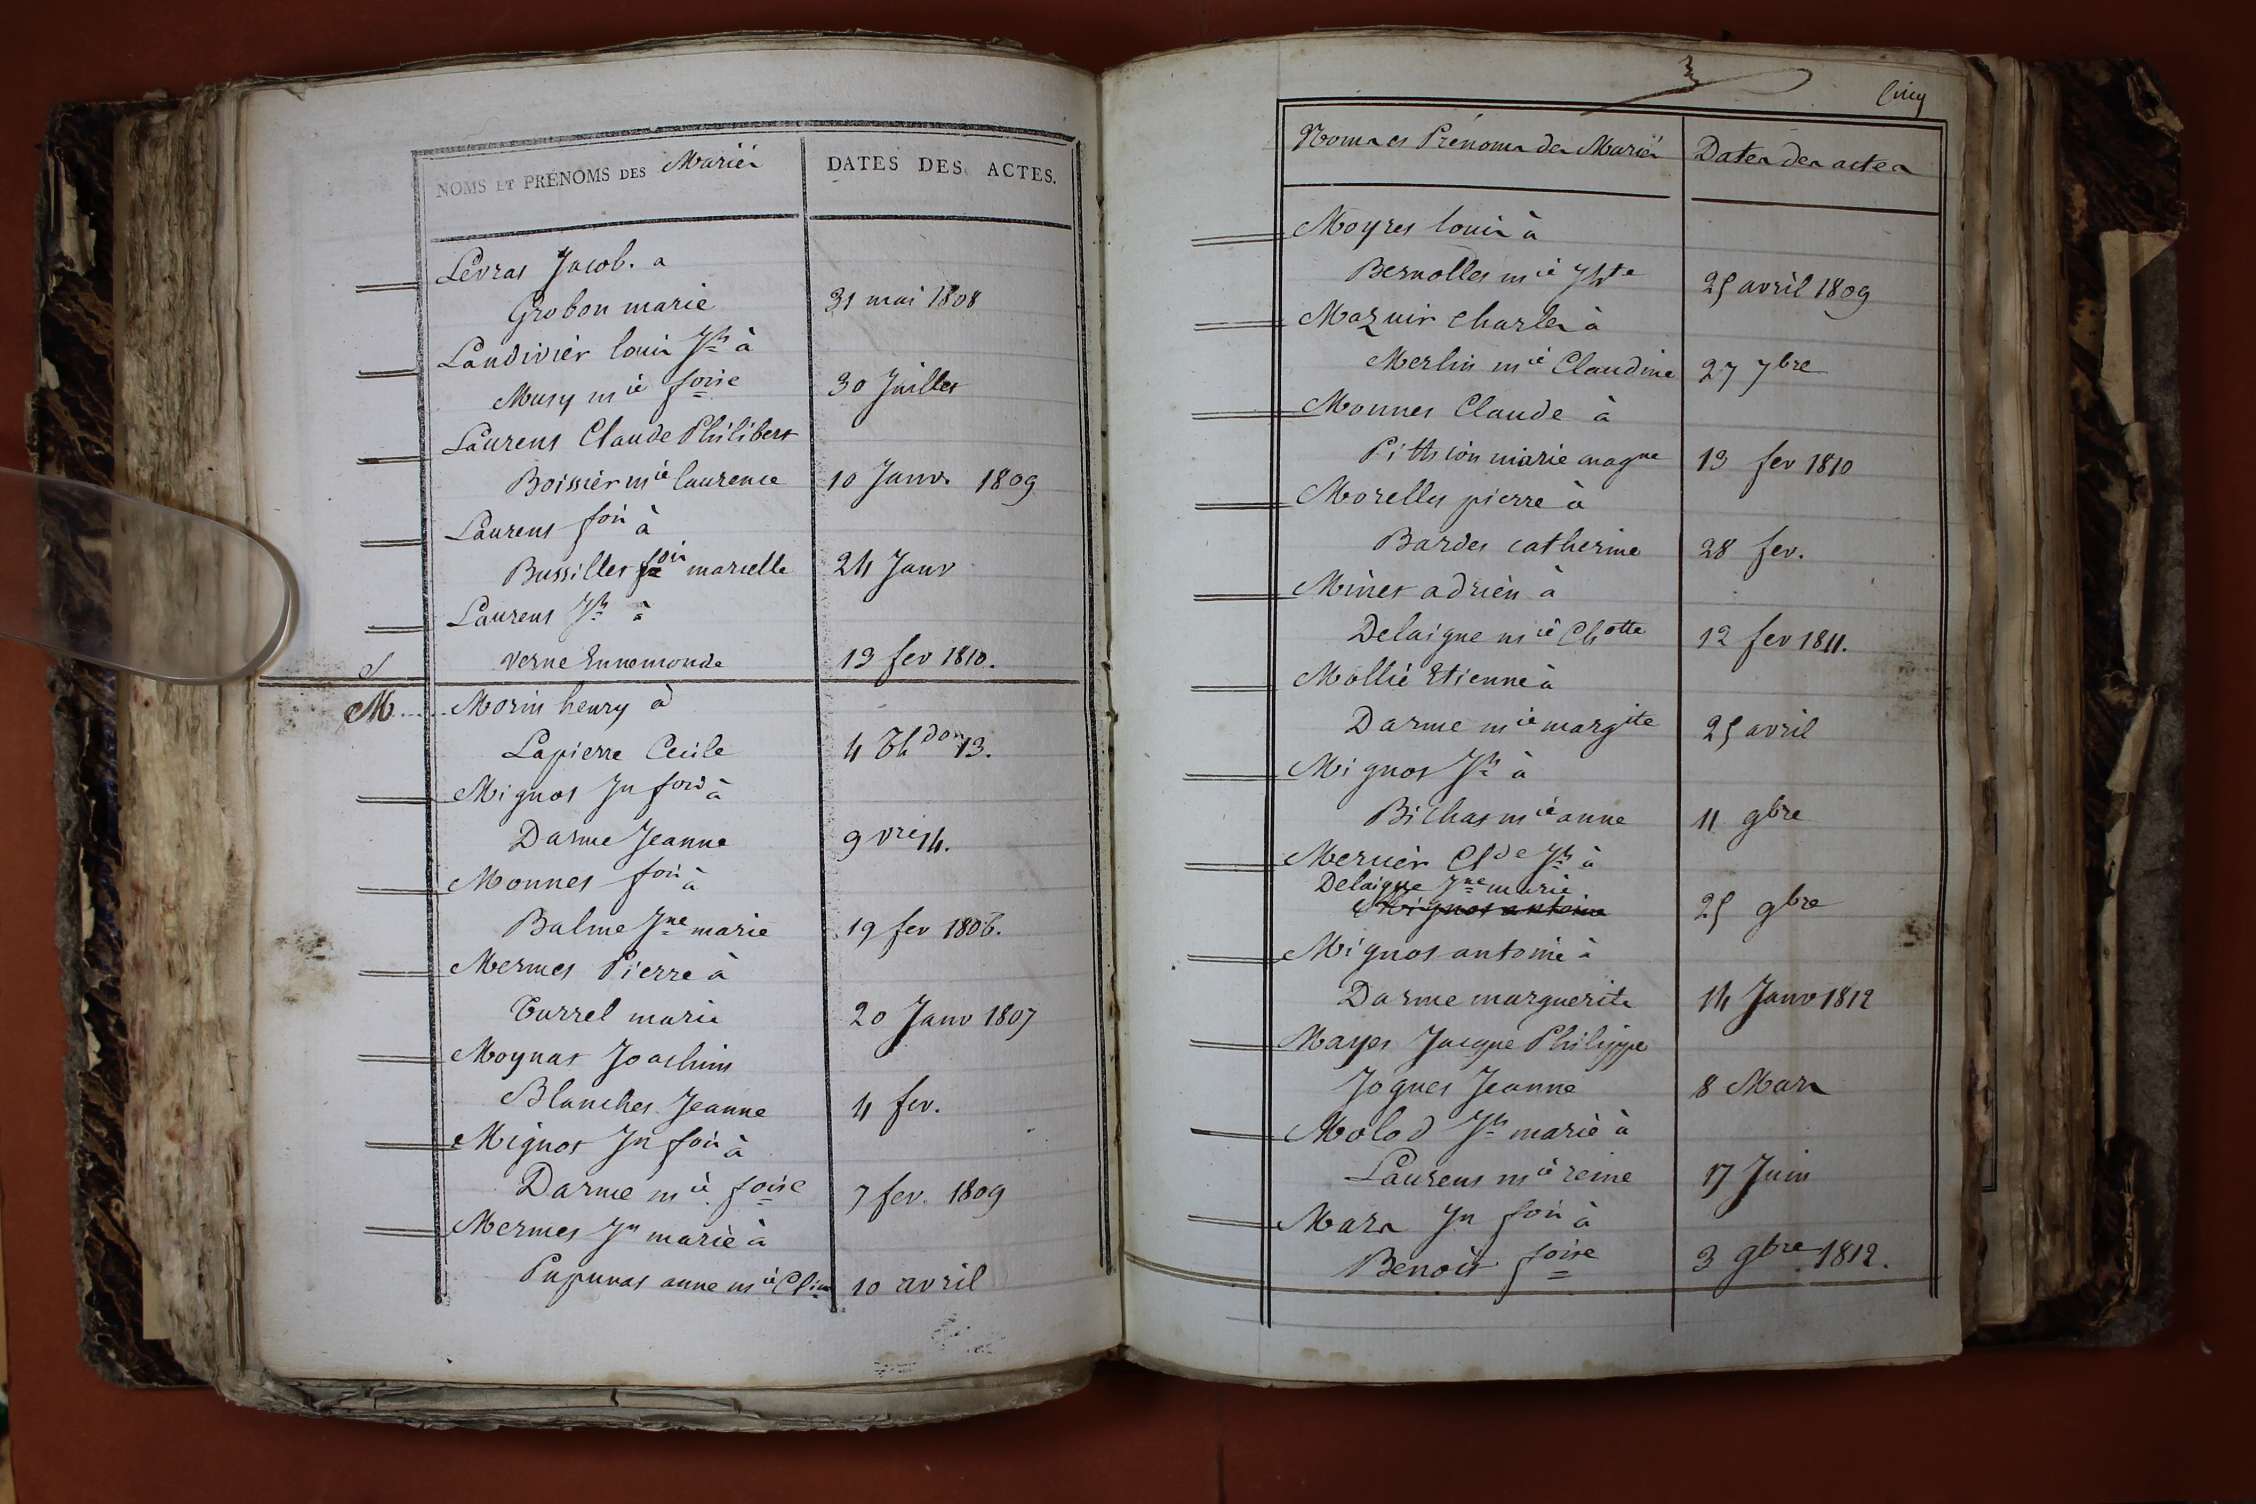 NOMS ET PRÉNOMS DES Mariés
DATES DES ACTES.
Levrat Jacob. a
Grobon marie 31 mai 1808
Landivier louis Jh à
Musy mie foise 30 Juillet
Laurent Claude Philibert
Boissier mie laurence 10 Janv. 1809
Laurent fois à
Bussillet fois marielle 24 Janv
Laurent Jh à
Verne Ennemonde 13 fev 1810.
M Morin henry à
Lapierre Cecile 4 Thdor 13.
Mignot Jn fois à
Darme Jeanne 9 vre 14.
Monnet fois à
Balme Jne marie 19 fev 1806.
Mermet Pierre à
Turrel marie 20 Janv 1807
Moynat Joachim
Blanchet Jeanne 4 fev.
Mignot Jn fois à
Darme mie foise 7 fev. 1809
Mermet Jn marie à
Papunat anne mie Cline 10 avril
Cinq
Noms et Prénoms des Mariés
Dates des actes
Moyret louis à
Bernollet mie Jhte 25 avril 1809
Mazuir Charles à
Merlin mie Claudine 27 7bre
Monnet Claude à
Pithion marie magne 13 fev 1810
Morellet pierre à
Bardet catherine 28 fev.
Minet adrien à
Delaigue mie Chotte 12 fev 1811.
Mollié Etienne à
Darme mie margite 25 avril
Mignot Jh à
Bichat mie anne 11 9bre
Mercier Clde Jh à
Delaigue Jne marie
Mignot antoine 25 9bre
Mignot antoine à
Darme marguerite 14 Janv 1812
Mayet Jacque Philippe
Joguet Jeanne 8 Mars
Molod Jh marie à
Laurent mie reine 17 Juin
Mars Jn fois à
Benoit foise 3 9bre 1812.